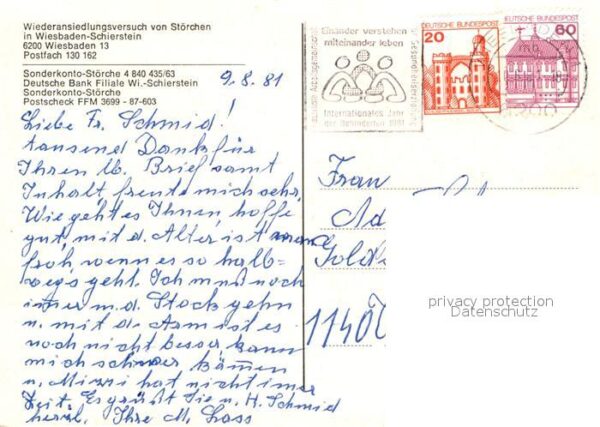 Wiederansiedlungsversuch von Störchen
in Wiesbaden-Schierstein
6200 Wiesbaden 13
Postfach 130 162
Sonderkonto-Störche 4 840 435/63
Deutsche Bank Filiale Wi.-Schierstein
Sonderkonto-Störche
Postscheck FFM 3699 - 87-603
9.8.81
Liebe Fr. Schmid!
tausend Dank für
Ihren lb. Brief samt
Inhalt, freute mich sehr,
Wie geht es Ihnen, hoffe
gut, mit d. Alter ist man
froh, wenn es so halb-
wegs geht. Ich muß noch
immer m. d. Stock gehn
u. mit d. Arm ist es
noch nicht besser, kann
mich schwer kämmen
u. Mizzi hat nicht imer
Zeit. Es grüßt Sie u. H. Schmid
herzl. Ihre M. Lass
Einander verstehen
miteinander leben
Internationales Jahr
der Behinderten 1981
20
DEUTSCHE BUNDESPOST
60
DEUTSCHE BUNDESPOST
Frau
Gold
1140
privacy protection
Datenschutz